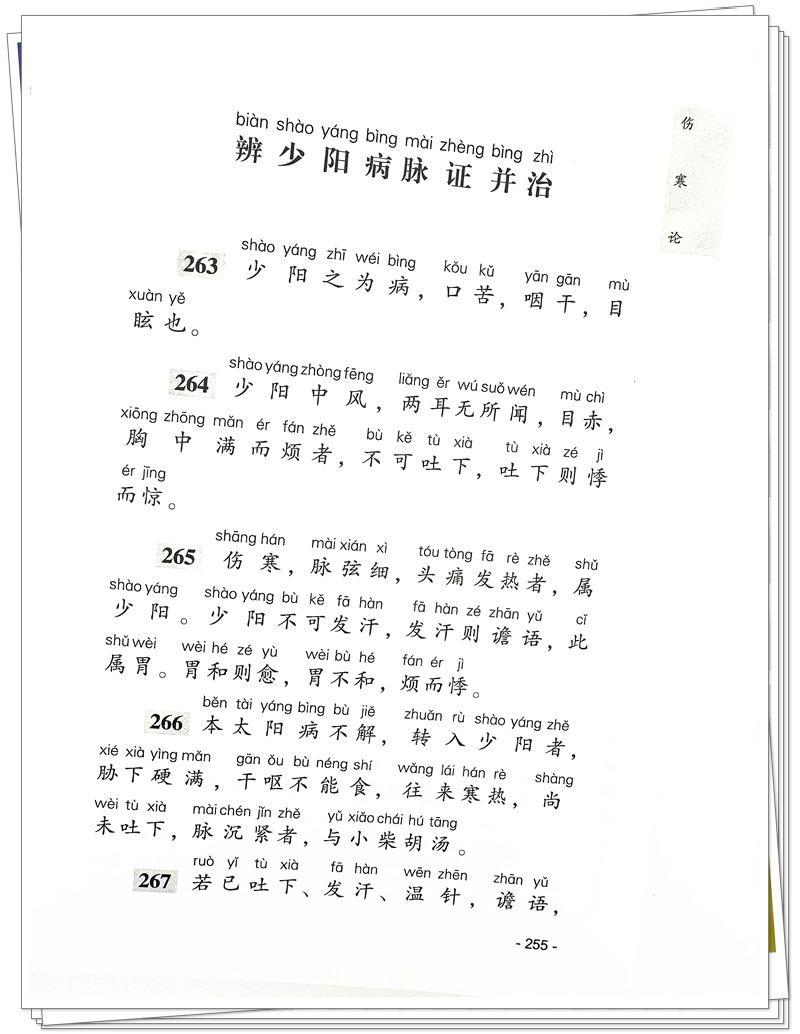 biàn shào yáng bìng mài zhèng bìng zhì
辨少阳病脉证并治
伤寒论
shào yáng zhī wéi bìng kǒu kǔ yān gān mù
263 少阳之为病，口苦，咽干，目
xuàn yě
眩也。
shào yáng zhòng fēng liǎng ěr wú suǒ wén mù chì
264 少阳中风，两耳无所闻，目赤，
xiōng zhōng mǎn ér fán zhě bù kě tù xià tù xià zé jì
胸中满而烦者，不可吐下，吐下则悸
ér jīng
而惊。
shāng hán mài xián xì tóu tòng fā rè zhě shǔ
265 伤寒，脉弦细，头痛发热者，属
shào yáng shào yáng bù kě fā hàn fā hàn zé zhān yǔ cǐ
少阳。少阳不可发汗，发汗则谵语，此
shǔ wèi wèi hé zé yù wèi bù hé fán ér jì
属胃。胃和则愈，胃不和，烦而悸。
běn tài yáng bìng bù jiě zhuǎn rù shào yáng zhě
266 本太阳病不解，转入少阳者，
xié xià yìng mǎn gān ǒu bù néng shí wǎng lái hán rè shàng
胁下硬满，干呕不能食，往来寒热，尚
wèi tù xià mài chén jǐn zhě yǔ xiǎo chái hú tāng
未吐下，脉沉紧者，与小柴胡汤。
ruò yǐ tù xià fā hàn wēn zhēn zhān yǔ
267 若已吐下、发汗、温针，谵语，
- 255 -